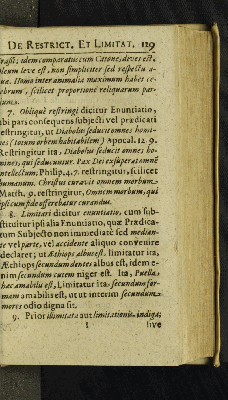 DE RESTRICT. ET LIMITAT. 129
crassi; idem comparatus cum Catone, deves est.
oleum leve est, non simpliciter sed respectu a-
quæ. Homo inter animalia maximum habet ce-
rebrum, scilicet proportione reliquarum par-
tium.
7. Obliquè restringi dicitur Enunciatio,
ubi pars consequens subjecti vel prædicati
restringitur, ut Diabolus seducit omnes homi-
nes (totum orbem habitabilem) Apocal. 12. 9.
Restringitur ita, Diabolus seducit omnes ho-
mines, qui seducuntur. Pax Dei exsuperat omnē
intellectum, Philip. 4. 7. restringitur, scilicet
humanum. Christus curavit omnem morbum.
Matth. 9. restringitur, Omnem morbum, qui
ipsi cum fide offerebatur curandus.
8. Limitari dicitur enuntiatio, cum sub-
stituitur ipsi alia Enunciatio, quæ Prædica-
tum Subjecto non immediatè sed median-
te vel parte, vel accidente aliquo convenire
declaret; ut Æthiops albus est. limitatur ita,
Æthiops secundum dentes albus est, idem e-
nim secundum cutem niger est. Ita, Puella
hæc amabilis est, Limitatur ita, secundum for-
mam amabilis est, ut ut interim secundum
mores odio digna sit.
9. Prior illimitata aut limitationis indiga;
I sive